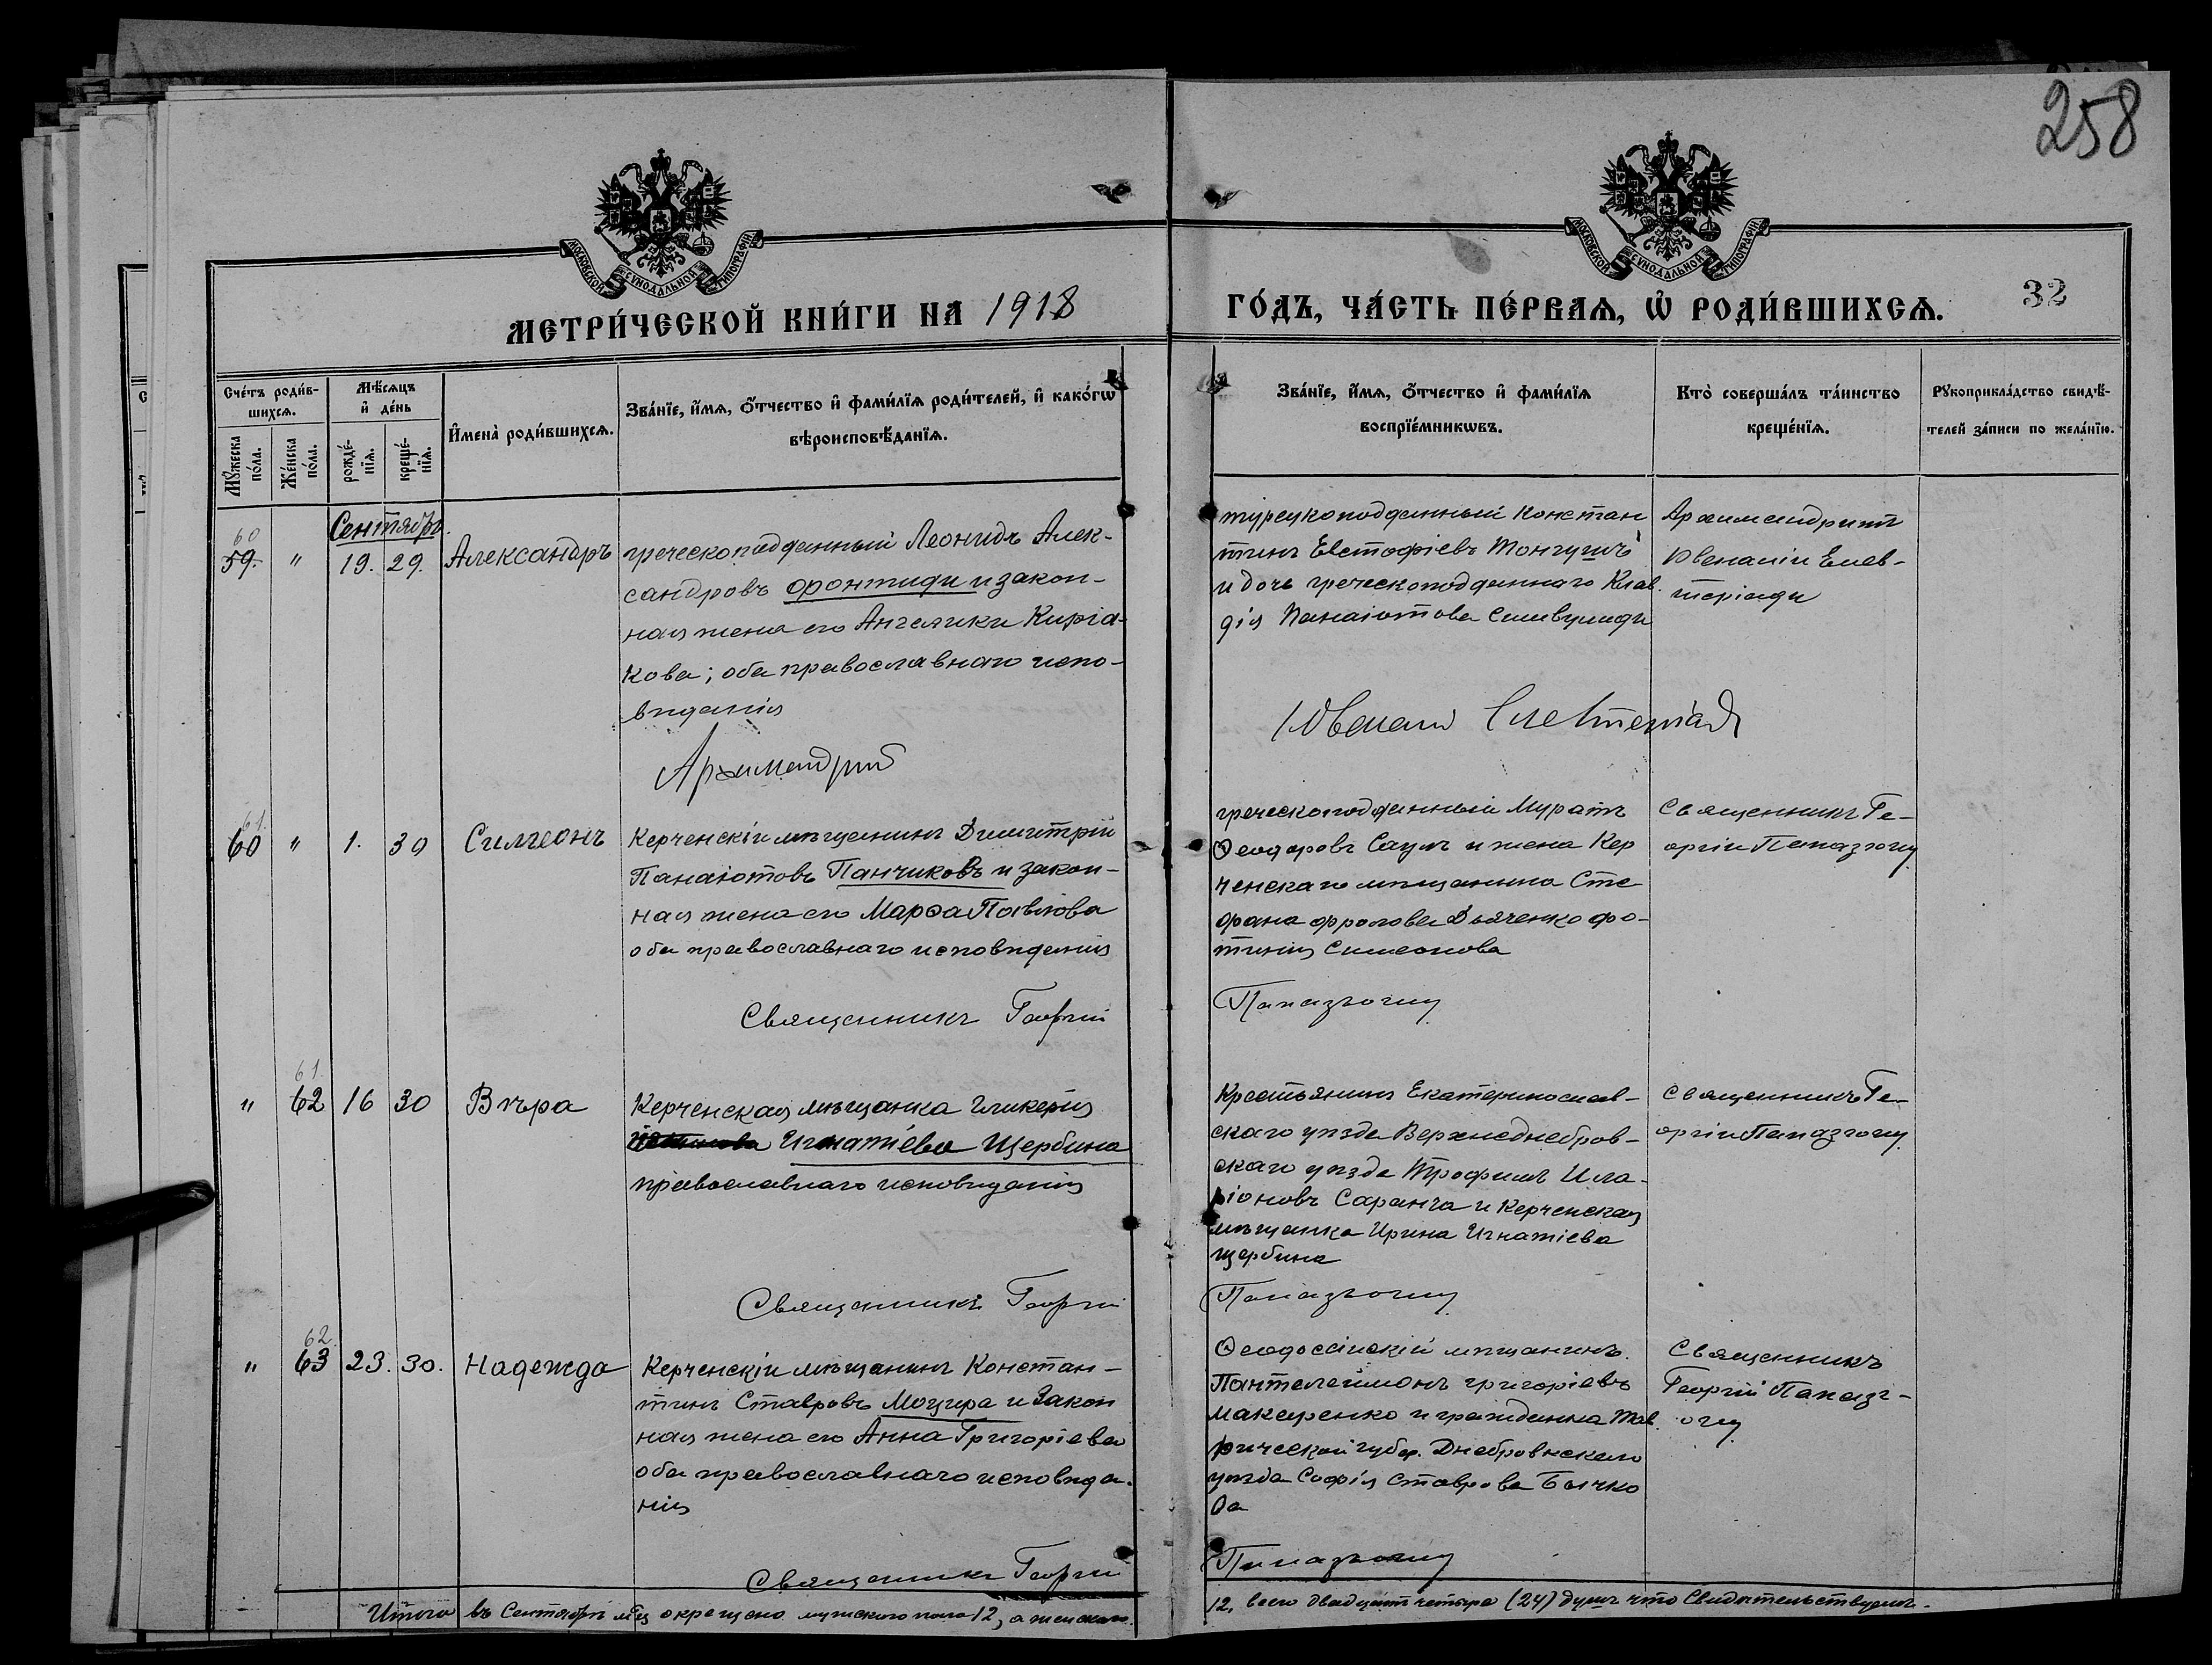 258
МОСКОВСКОЙ СѴНОДАЛЬНОЙ ТИПОГРАФІИ
МОСКОВСКОЙ СѴНОДАЛЬНОЙ ТИПОГРАФІИ
МЕТРИ́ЧЕСКОЙ КНИ́ГИ НА 1918
ГО́ДЪ, ЧА́СТЬ ПЕ́РВАѦ, Ѡ҆ РОДИ́ВШИХСѦ.
32
Сче́тъ роди́в-
шихсѧ.
Мѣ́сѧцъ
и҆ де́нь
Мꙋ́жеска
по́ла.
Же́нска
по́ла.
рожде́-
нїѧ.
креще́-
нїѧ.
И҆мена̀ роди́вшихсѧ.
Зва́нїе, и҆́мѧ, ѻ҆́тчество и҆ фами́лїѧ роди́телей, и҆ како́гѡ
вѣроисповѣ́данїѧ.
Зва́нїе, и҆́мѧ, ѻ҆́тчество и҆ фами́лїѧ
воспрїе́мникѡвъ.
Кто̀ соверша́лъ та́инство
креще́нїѧ.
Рꙋкоприкла́дство свидѣ́-
телей за́писи по жела́нїю.
Сентябрь.
60
59. " 19. 29. Александръ
греческоподданный Леонидъ Алек-
сандровъ Фонтиди и закон-
ная жена его Ангелики Киріа-
кова; оба православнаго испо-
вѣданія
Архимандрит
турецкоподданный Констан
тинъ Евстафіевъ
и дочь греческоподданнаго Клав.
дія Панаіотова
Архимандритъ
Ювеналій Елев-
теріади
Ювеналій Елевтеріад
61.
60 " 1. 30 Симеонъ
Керченскій мѣщанинъ Димитрій
Панаіотовъ Панчиковъ и закон-
ная жена его Марѳа Павлова
оба православнаго исповѣданія
Священникъ Георгій
греческоподданный Муратъ
Ѳеодоровъ Саулъ и жена Кер
ченскаго мѣщанина Сте
фана Фролова Дьяченко Фо-
тинія Симеонова
Папазъоглу
Священникъ Ге-
оргій Папазъоглу
61.
" 62 16 30 Вѣра
Керченская мѣщанка Гликерія
Игнатіева Щербина
православнаго исповѣданія
Священникъ Георгій
Крестьянинъ Екатеринослав-
скаго уѣзда Верхнеднебров-
скаго уѣзда Трофимъ Ила-
ріоновъ Саранча и Керченская
мѣщанка Ирина Игнатіева
Щербина
Папазъоглу
Священникъ Ге-
оргій Папазъоглу
62
" 63 23. 30. Надежда
Керченскій мѣщанинъ Констан-
тинъ Ставровъ Моцира и Закон
ная жена его Анна Григоріева
оба православнаго исповѣда-
нія
Священникъ Георгій
Ѳеодосійскій мѣщанинъ
Пантелеймонъ Григоріевъ
Макаренко и гражданка Тав
рической губер. Днебровскаго
уѣзда Софія Ставрова Бычко
ва
Папазъоглу
Священникъ
Георгій Папазъ-
оглу
Итого въ Сентябрѣ мѣц окрещено мужского пола 12, а женскаго
12, всего двадцать четыре (24) душъ что свидѣтельствуемъ.